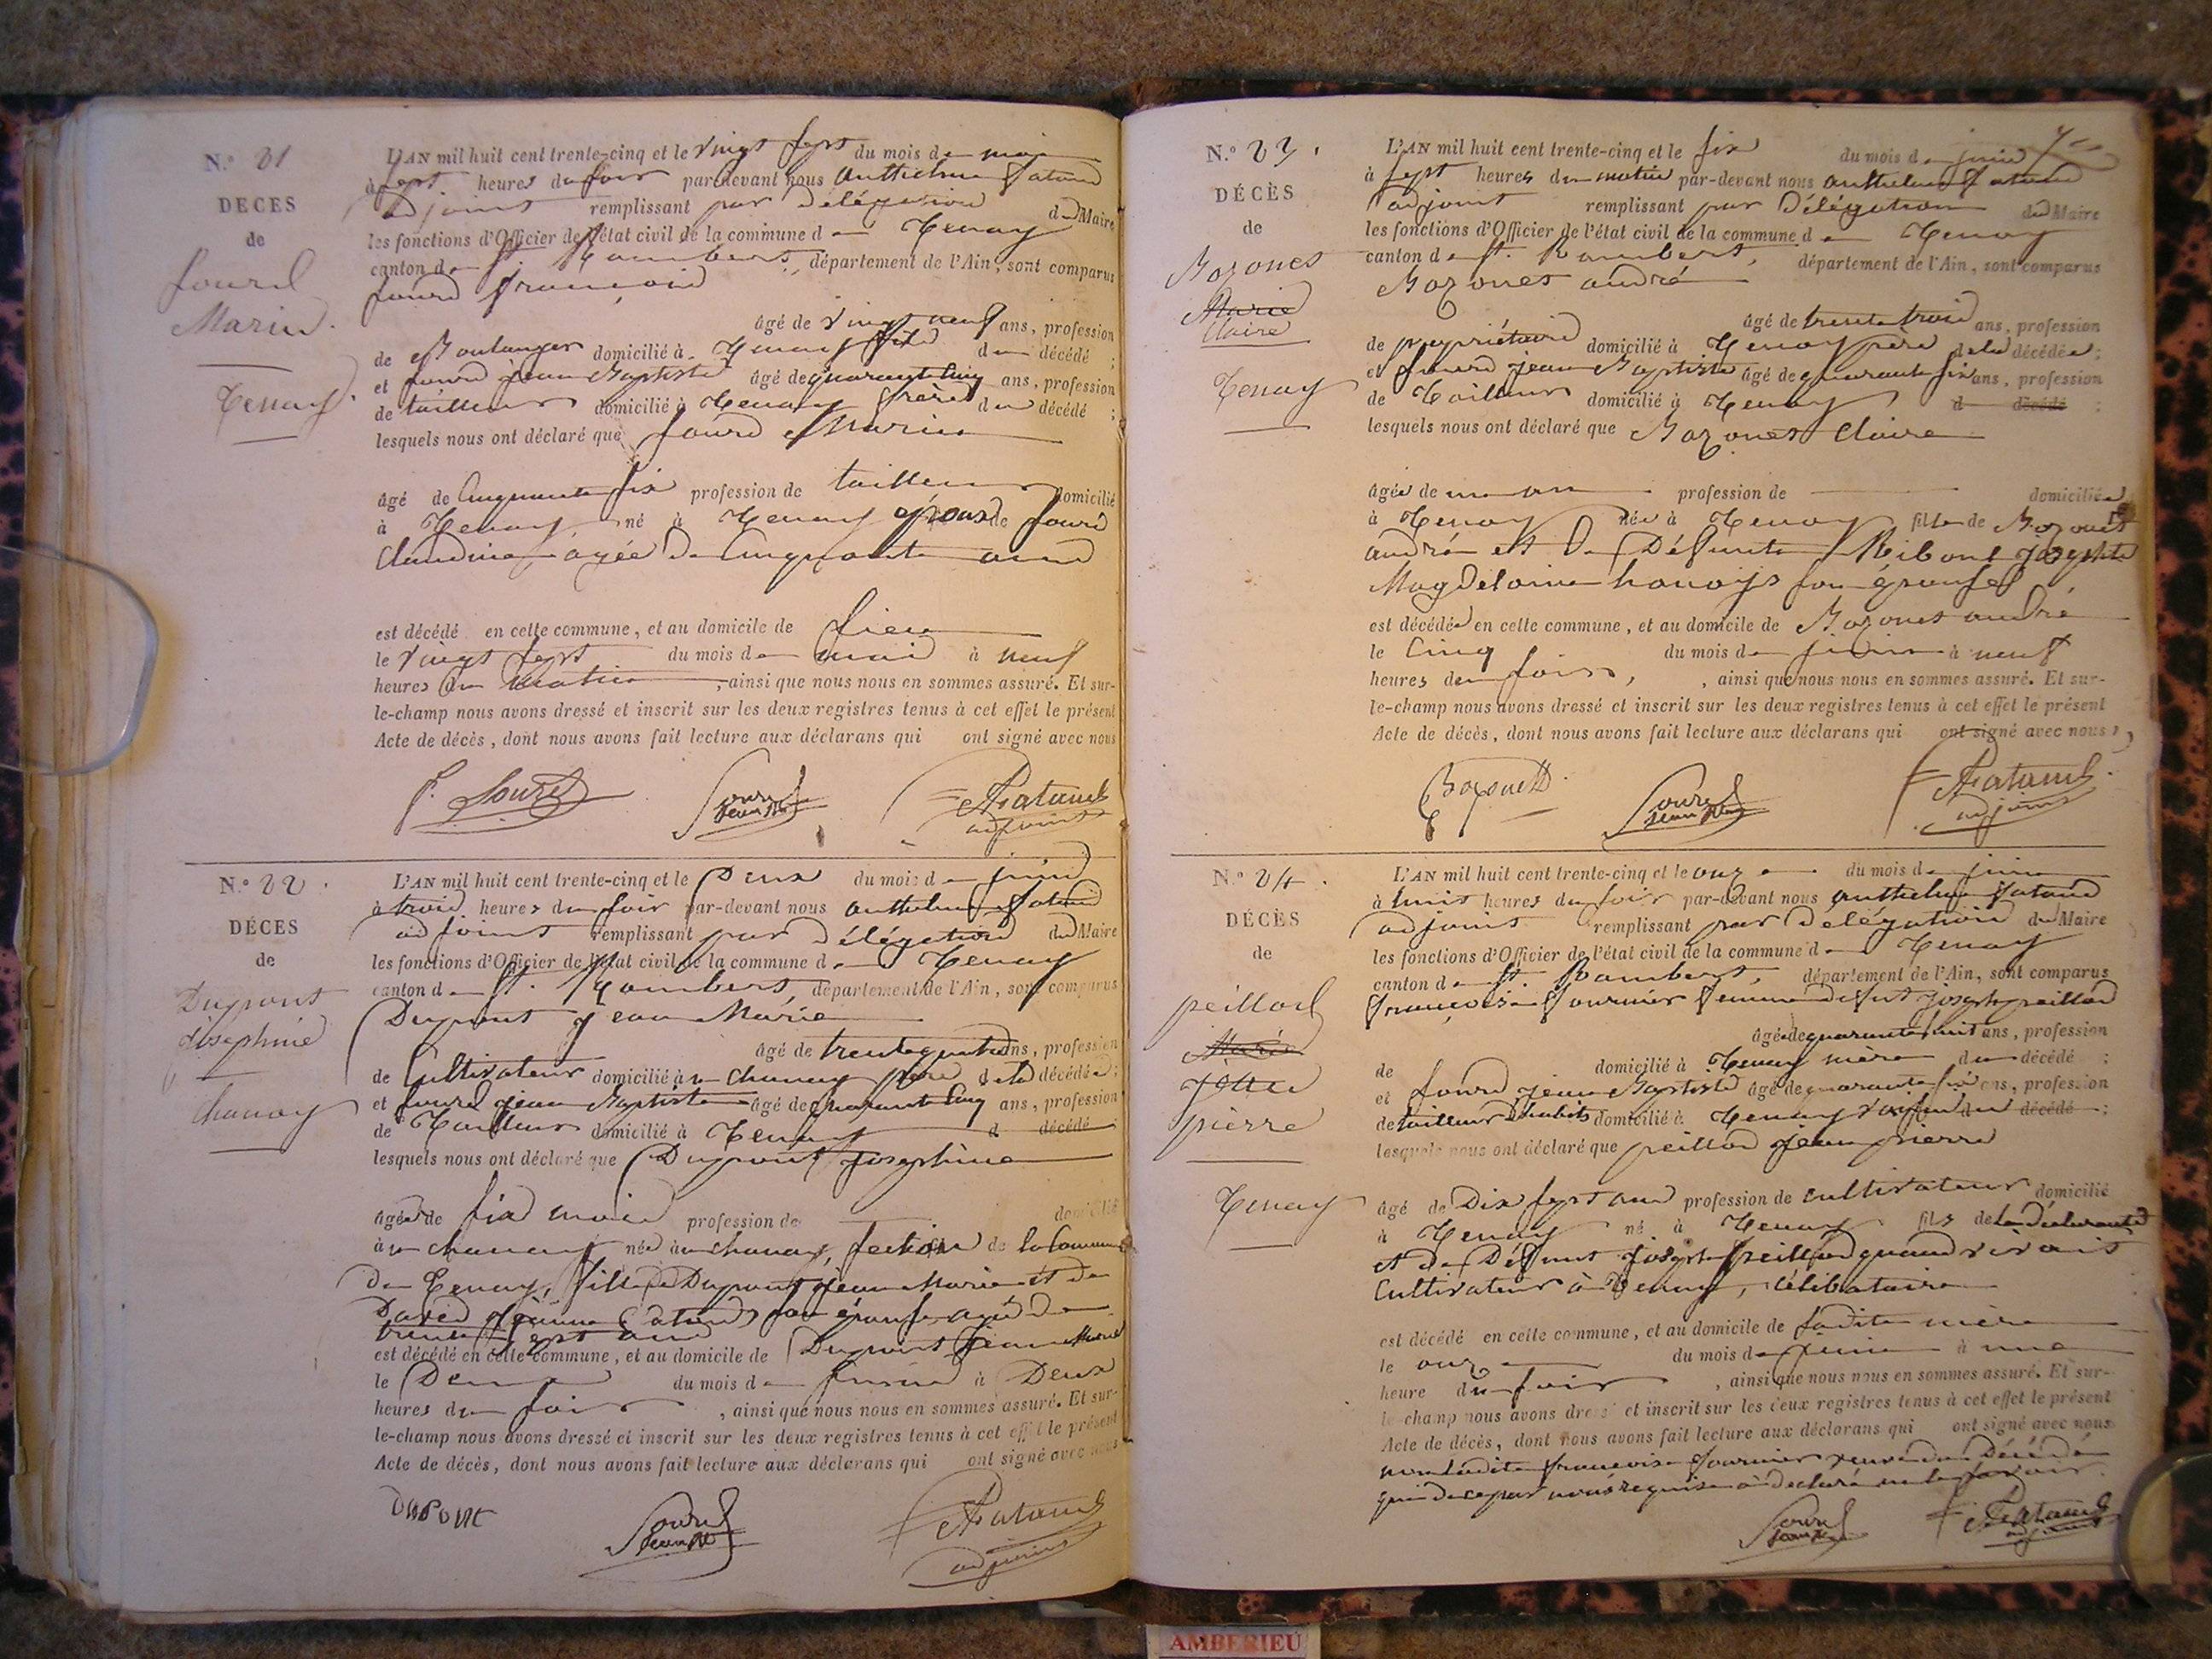 N.° 21
DÉCÈS
de
fourd
Marin.
Tenay.
L'AN mil huit cent trente-cinq et le vingt sept du mois de mai
à sept heures du soir par-devant nous anthelme
adjoint remplissant par délégation du Maire
les fonctions d'Officier de l'état civil de la commune de Tenay
canton de St. Rambert, département de l'Ain, sont comparus
fourd françois
âgé de vingt neuf ans, profession
de Boulanger domicilié à Tenay fils du décédé ;
et fourd jean Baptiste âgé de quarante cinq ans, profession
de tailleur domicilié à Tenay frère du décédé ;
lesquels nous ont déclaré que fourd Marin
âgé de cinquante six profession de tailleur domicilié
à Tenay né à Tenay époux de fourd
Claudine âgée de cinquante ans
est décédé en cette commune, et au domicile de sien
le vingt sept du mois de mai à neuf
heures du matin, ainsi que nous nous en sommes assuré. Et sur-
le-champ nous avons dressé et inscrit sur les deux registres tenus à cet effet le présent
Acte de décès, dont nous avons fait lecture aux déclarans qui ont signé avec nous
adjoint
N.° 22.
DÉCES
de
Dupont
joséphine
chanay
L'AN mil huit cent trente-cinq et le Deux du mois de juin
à trois heures du soir par-devant nous anthelme
adjoint remplissant par délégation du Maire
les fonctions d'Officier de l'état civil de la commune de Tenay
canton de St. Rambert, département de l'Ain, sont comparus
Dupont jean Marie
âgé de trente quatre ans, profession
de Cultivateur domicilié à chanay père de la décédée ;
et fourd jean Baptiste âgé de quarante cinq ans, profession
de Tailleur domicilié à Tenay d décédé
lesquels nous ont déclaré que Dupont josephine
âgée de six mois profession de domicilié
à chanay née à chanay, section de la Commune
de Tenay, fille de Dupont jean Marie et de
son épouse, agé de
trente sept ans
est décédé en cette commune, et au domicile de Dupont jean Marie
le Deux du mois de juin à Deux
heures du soir, ainsi que nous nous en sommes assuré. Et sur-
le-champ nous avons dressé et inscrit sur les deux registres tenus à cet effet le présent
Acte de décès, dont nous avons fait lecture aux déclarans qui ont signé avec nous
DUPONt
adjoint
N.° 23.
DÉCÈS
de
Bozonet
Marie
Claire
Tenay
L'AN mil huit cent trente-cinq et le six du mois de juin
à sept heures du matin par-devant nous anthelme
adjoint remplissant par Délégation du Maire
les fonctions d'Officier de l'état civil de la commune de Tenay
canton de St. Rambert, département de l'Ain, sont comparus
Bozonet andré
âgé de trente trois ans, profession
de propriétaire domicilié à Tenay père de la décédée ;
et fourd jean Baptiste âgé de quarante six ans, profession
de Tailleur domicilié à Tenay d décédé ;
lesquels nous ont déclaré que Bozonet Claire
âgée de un an profession de domiciliée
à Tenay née à Tenay fille de Bozonet
andré et de Défunte
Magdelaine son épouse
est décédée en cette commune, et au domicile de Bozonet andré
le cinq du mois de juin à neuf
heures du soir, ainsi que nous nous en sommes assuré. Et sur-
le-champ nous avons dressé et inscrit sur les deux registres tenus à cet effet le présent
Acte de décès, dont nous avons fait lecture aux déclarans qui ont signé avec nous
Bozonett
adjoint
N.° 24.
DÉCÈS
de
peillod
Marie
jean
pierre
Tenay
L'AN mil huit cent trente-cinq et le onze du mois de juin
à huit heures du soir par-devant nous anthelme
adjoint remplissant par Délégation du Maire
les fonctions d'Officier de l'état civil de la commune de Tenay
canton de St. Rambert, département de l'Ain, sont comparus
françoise fournier femme de fut joseph peillod
âgée de quarante huit ans, profession
de domicilié à Tenay mère du décédé ;
et fourd jean Baptiste âgé de quarante six ans, profession
de tailleur d'habits domicilié à Tenay voisin du décédé ;
lesquels nous ont déclaré que peillod jean pierre
âgé de Dix sept ans profession de cultivateur domicilié
à Tenay né à Tenay fils de la déclarante
et de Défunt joseph peillod quand vivait
Cultivateur à Tenay, célibataire
est décédé en cette commune, et au domicile de sadite mère
le onze du mois de juin à une
heure du soir, ainsi que nous nous en sommes assuré. Et sur-
le-champ nous avons dressé et inscrit sur les deux registres tenus à cet effet le présent
Acte de décès, dont nous avons fait lecture aux déclarans qui ont signé avec nous
non ladite françoise fournier
qui de ce par nous requise a déclaré ne le savoir.
adjoint
AMBERIEU